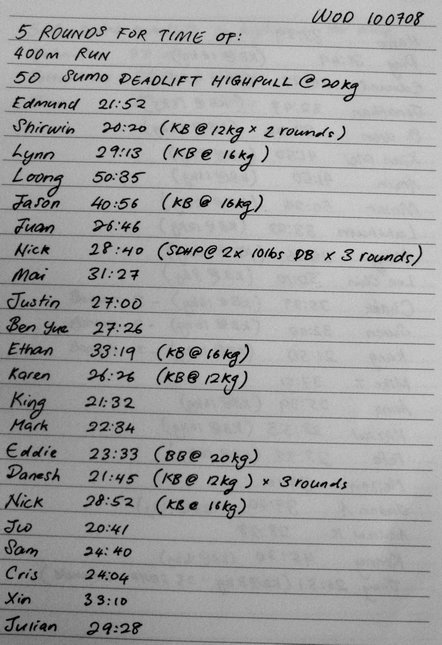 WOD 100708
5 ROUNDS FOR TIME OF:
400m RUN
50 SUMO DEADLIFT HIGHPULL @ 20kg
Edmund 21:52
Shirwin 20:20 (KB @ 12kg × 2 rounds)
Lynn 29:13 (KB @ 16kg)
Loong 50:35
Jason 40:56 (KB @ 16kg)
Juan 26:46
Nick 28:40 (SDHP @ 2x 10lbs DB x 3 rounds)
Mai 31:27
Justin 27:00
Ben Yue 27:26
Ethan 33:19 (KB @ 16kg)
Karen 26:26 (KB @ 12kg)
King 21:32
Mark 22:34
Eddie 23:33 (BB @ 20kg)
Danesh 21:45 (KB @ 12kg) × 3 rounds
Nick 28:52 (KB @ 16kg)
Jo 20:41
Sam 24:40
Cris 24:04
Xin 33:10
Julian 29:28